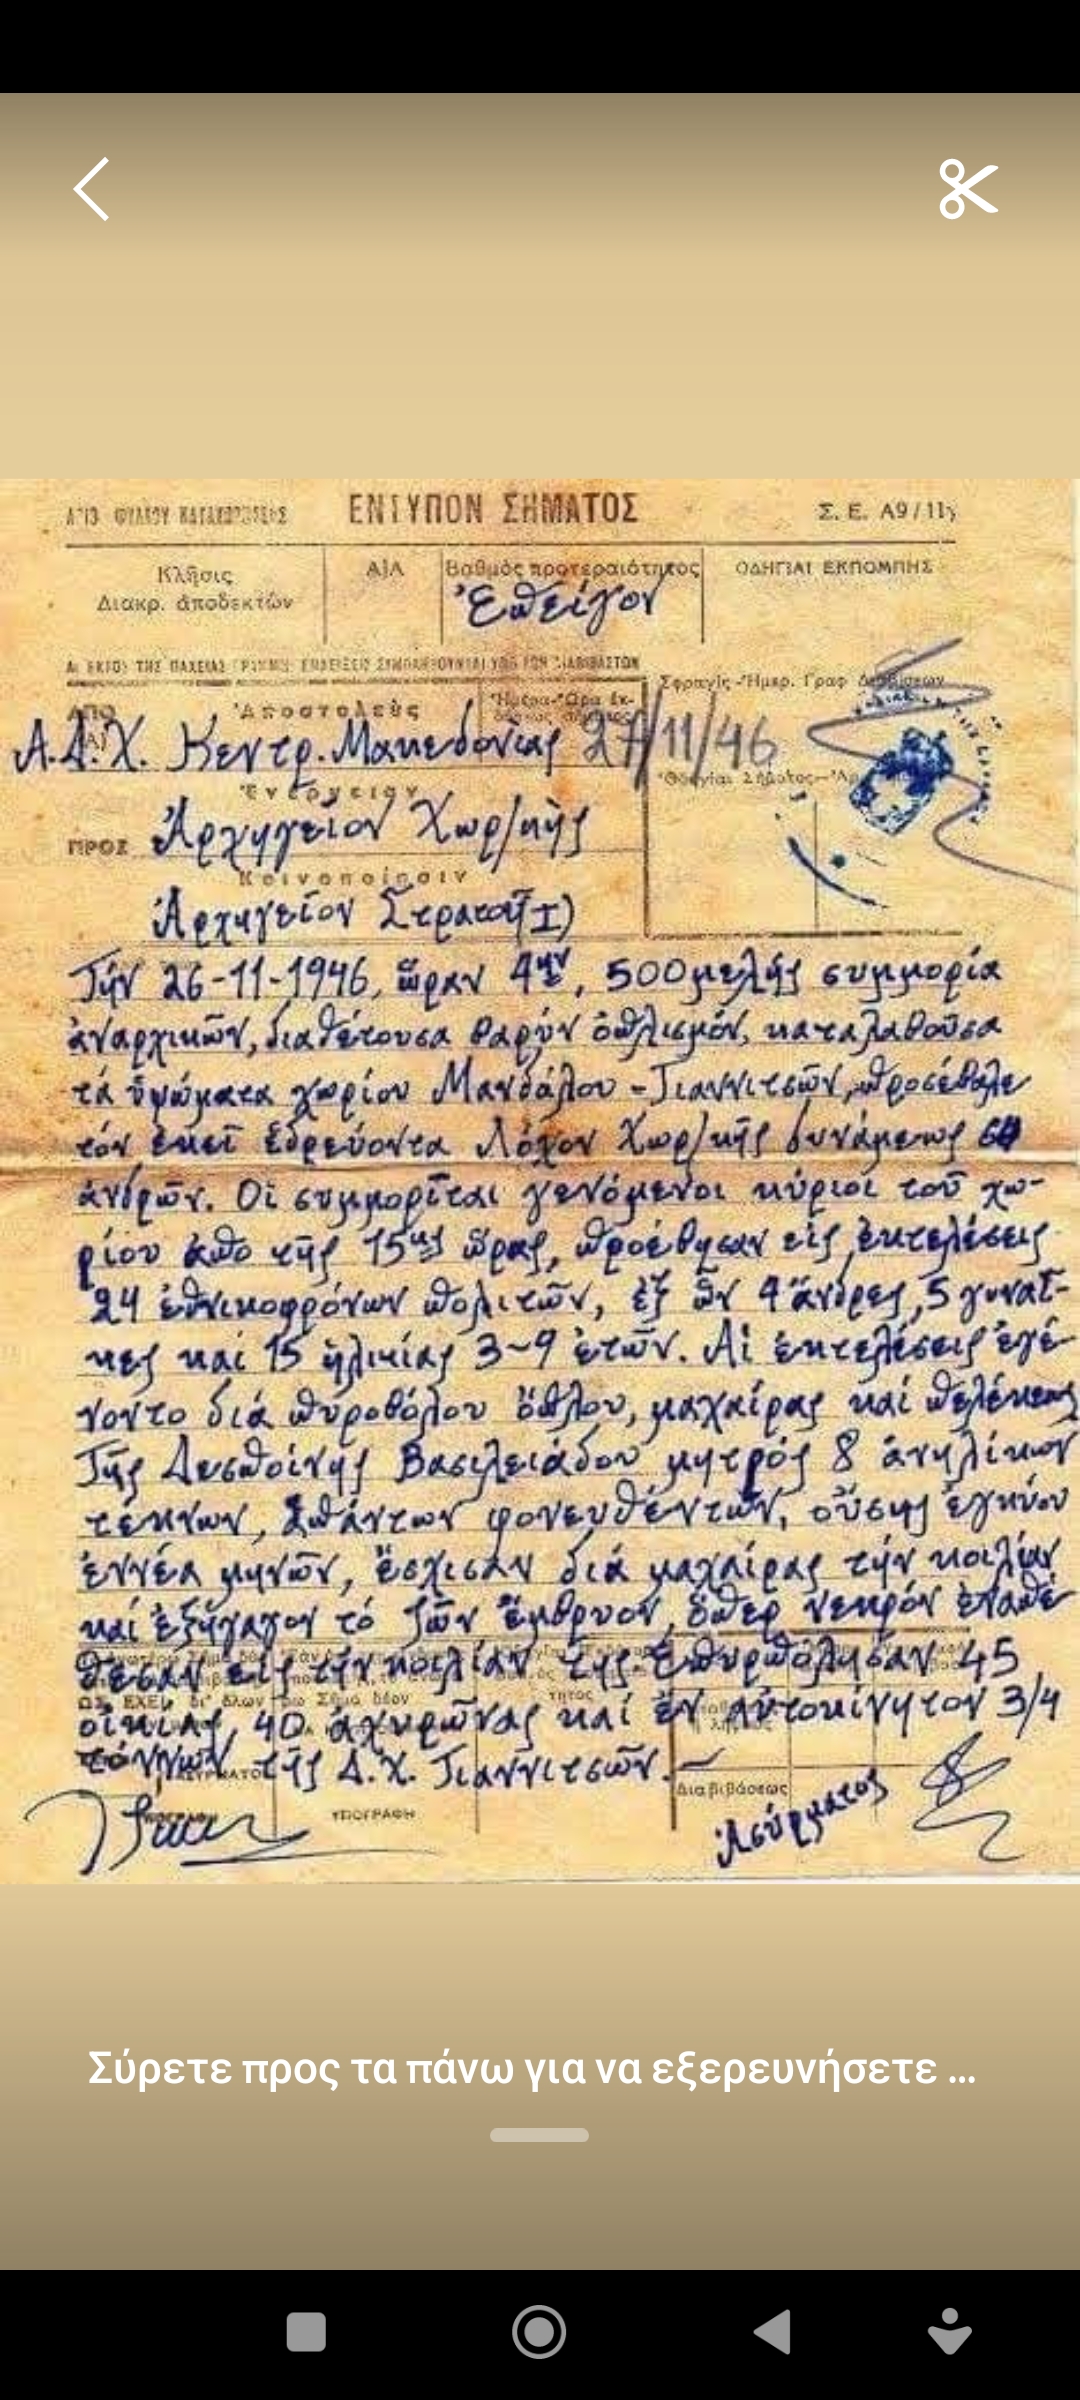 ΕΝΤΥΠΟΝ ΣΗΜΑΤΟΣ
Σ. Ε. Α9/11γ
Κλῆσις
Διακρ. ἀποδεκτῶν
Α|Α
Βαθμὸς προτεραιότητος
Ἐπεῖγον
ΟΔΗΓΙΑΙ ΕΚΠΟΜΠΗΣ
ΑΠΟ
Ἀποστολεὺς
Σφραγὶς-Ἡμερ. Γραφ
Α.Δ.Χ. Κεντρ. Μακεδονίας 27/11/46
Ἐνέργειαν
ΠΡΟΣ Ἀρχηγεῖον Χωρ/κῆς
Κοινοποίησιν
Ἀρχηγεῖον Στρατοῦ(Ι)
Τήν 26-11-1946, ὥραν 4ην, 500μελής συμμορία
ἀναρχικῶν, διαθέτουσα βαρύν ὁπλισμόν, καταλαβοῦσα
τά ὑψώματα χωρίου Μανδάλου - Γιαννιτσῶν, προσέβαλε
τόν ἐκεῖ ἑδρεύοντα Λόχον Χωρ/κῆς δυνάμεως
ἀνδρῶν. Οἱ συμμορῖται γενόμενοι κύριοι τοῦ χω-
ρίου ἀπο τῆς 15ης ὥρας, προέβησαν εἰς ἐκτελέσεις
24 ἐθνικοφρόνων πολιτῶν, ἐξ ὧν 4 ἄνδρες, 5 γυναῖ-
κες καί 15 ἡλικίας 3~9 ἐτῶν. Αἱ ἐκτελέσεις ἐγέ-
νοντο διά πυροβόλου ὅπλου, μαχαίρας καί πελέκεως
Τῆς Δεσποίνης Βασιλειάδου μητρός 8 ἀνηλίκων
τέκνων, ἁπάντων φονευθέντων, οὔσης ἐγκύου
ἐννέα μηνῶν, ἔσχισαν διά μαχαίρας τήν κοιλίαν
καί ἐξήγαγον τό ζῶν ἔμβρυον, ὅπερ νεκρόν ἐναπέ-
θεσαν εἰς τήν κοιλίαν της. Ἐπυρπόλησαν 45
οἰκίας, 40 ἀχυρῶνας καί ἕν αὐτοκίνητον 3/4
τόννων τῆς Δ.Χ. Γιαννιτσῶν.-
ΥΠΟΓΡΑΦΗ
Διαβιβάσεως
Ἀσύρματος
Σύρετε προς τα πάνω για να εξερευνήσετε ...